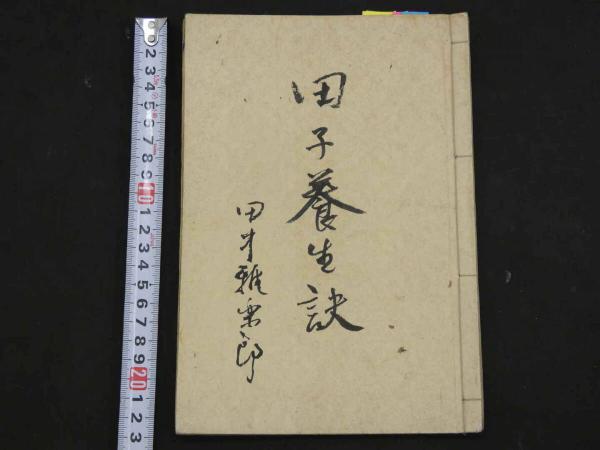 田子養生訣
田中雅楽郎
2 3 4 5 6 7 8 9 10 1 2 3 4 5 6 7 8 9 20 1 2 3